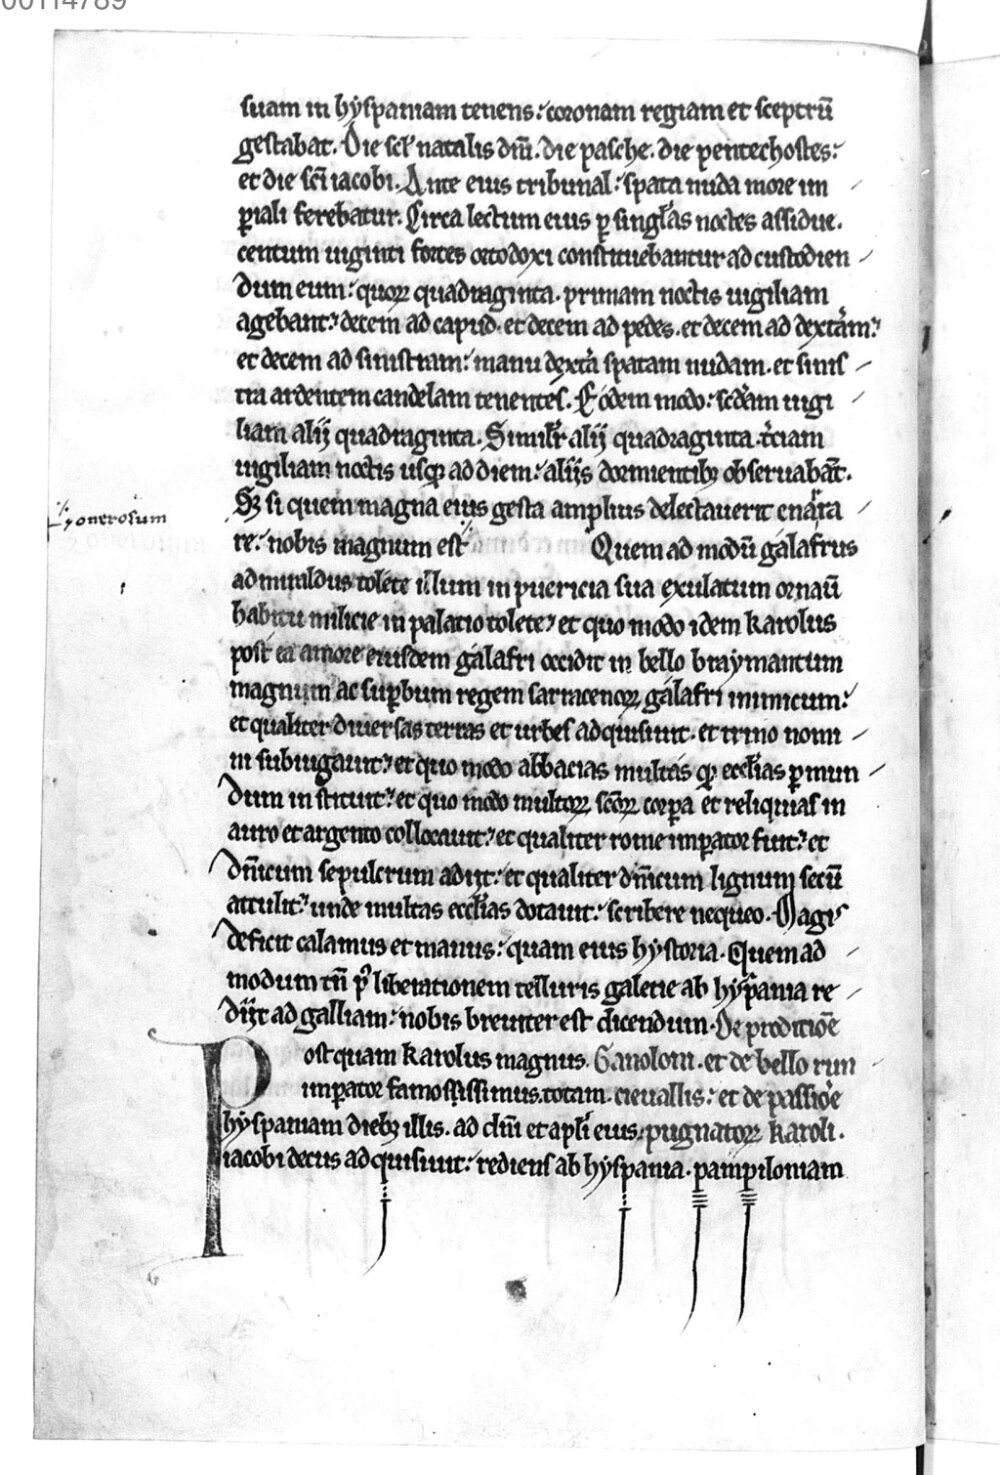 00114789
suam in hyspaniam tenens: coronam regiam et sceptrū
gestabat. Die scł natalis dn̄i. die pasche. die pentechostes:
et die sc̄i iacobi. Ante eius tribunal: spata nuda more im
ꝑiali ferebatur. Circa lectum eius ꝑ singłas noctes assidue.
centum uiginti fortes ortodoxi constituebantur ad custodien
dum eum: quoꝝ quadraginta. primam noctis uigiliam
agebant: decem ad capud. et decem ad pedes. et decem ad dextam:
et decem ad sinistram: manu dexta spatam nudam. et sinis
tra ardentem candelam tenentes. Eodem modo: scdam uigi
liam alij quadraginta. Similr alij quadraginta. tciam
uigiliam noctis usqꝫ ad diem: alijs dormientibꝫ obseruabāt.
Sꝫ si quem magna eius gesta amplius delectauerit enarra
onerosum
re: nobis magnum est Quem ad modū galafrus
admiraldus tolete illum in puericia sua exulatum ornaū
habitu milicie in palacio tolete: et quo modo idem karolus
post ea amore eiusdem galafri occidit in bello braymantum
magnum ac suꝑbum regem sarracenoꝝ galafri inimicum:
et qualiter diuersas terras et urbes adquisiuit. et trino nomi
ni subiugauit: et quo modo abbacias multas qꝫ eccłias ꝑ mun
dum instituit: et quo modo multoꝝ scōꝝ corpa et reliquias in
auro et argento collocauit: et qualiter rome imꝑator fuit: et
dn̄icum sepulcrum adiit: et qualiter dn̄icum lignum secū
attulit: unde multas eccłias dotauit: scribere nequeo. Magis
deficit calamus et manus: quam eius hystoria. Quem ad
modum tn̄ p liberationem telluris galecie ab hyspania re
dijt ad galliam: nobis breuiter est dicendum. De prodiciōe
Post quam karolus magnus. Ganoloni. et de bello run
imꝑator famosissimus. totam. cieuallis: et de passiōe
hyspaniam diebꝫ illis. ad dn̄i et apłi eius. pugnatoꝝ karoli.
iacobi decus adquisiuit: rediens ab hyspania. pampiloniam